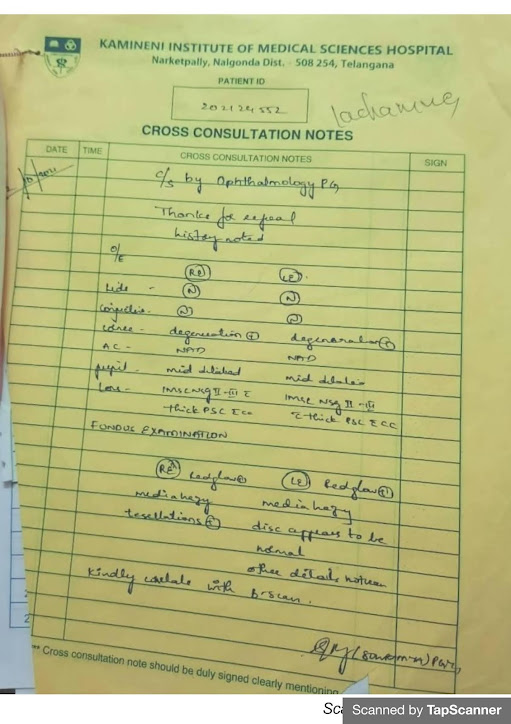 KAMINENI INSTITUTE OF MEDICAL SCIENCES HOSPITAL
Narketpally, Nalgonda Dist. - 508 254, Telangana
PATIENT ID
CROSS CONSULTATION NOTES
DATE TIME CROSS CONSULTATION NOTES SIGN
c/s by Ophthalmology PG
Thanks for
history noted
O/E
RE LE
Lids - N N
N N
degeneration + degeneration +
AC - NAD NAD
pupil - mid dilated mid dilated
Lens - IMSC NSG II-III c IMSC NSG II-III
thick PSC c CC c thick PSC c CC
FUNDUS EXAMINATION
RE Red glow + LE Red glow +
media hazy media hazy
+ disc appears to be
normal
other details not seen
kindly with B-scan.
** Cross consultation note should be duly signed clearly mentioning
Scanned by TapScanner